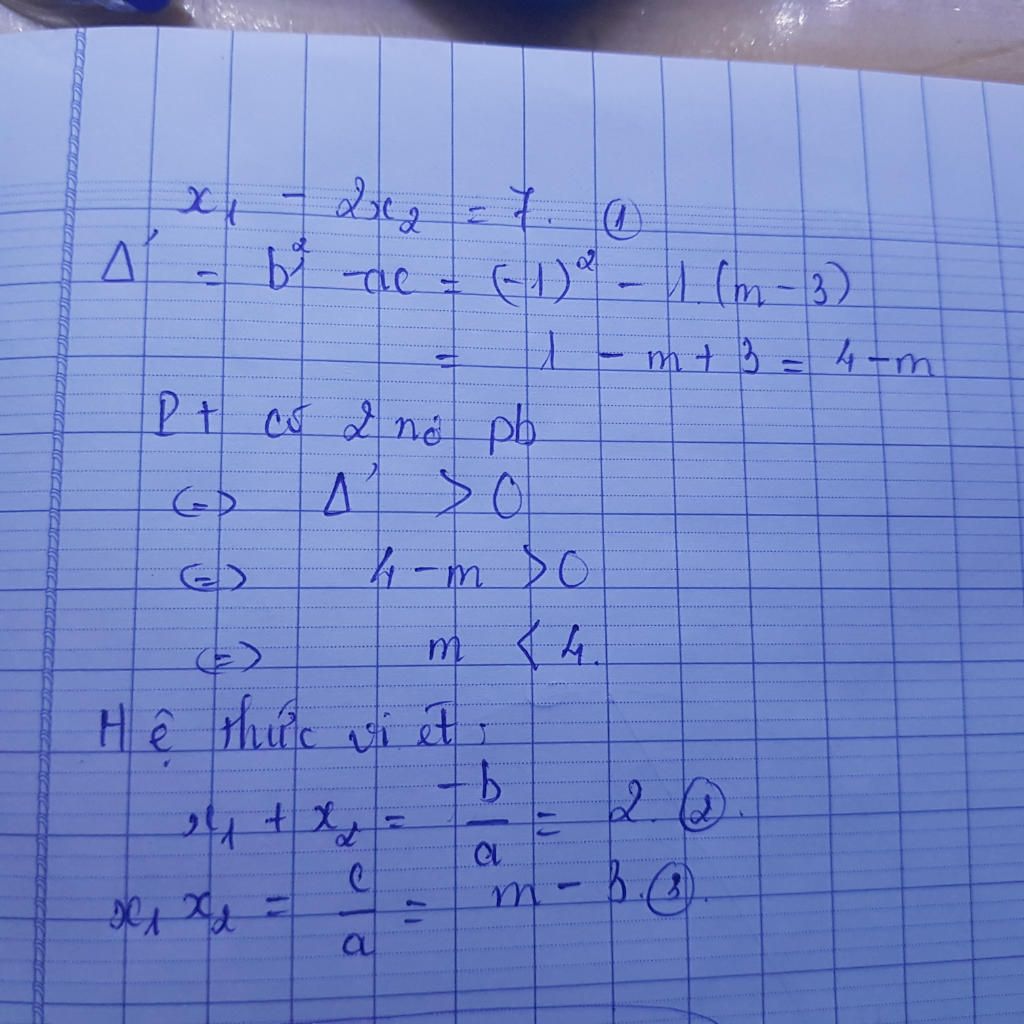 x₁ - 2x₂ = 7. ①
Δ' = b'² - ac = (-1)² - 1.(m - 3)
= 1 - m + 3 = 4 - m
Pt có 2 no pb
<=> Δ' > 0
<=> 4 - m > 0
<=> m < 4.
Hệ thức vi ét:
x₁ + x₂ = -b/a = 2. ②.
x₁ x₂ = c/a = m - 3. ③.